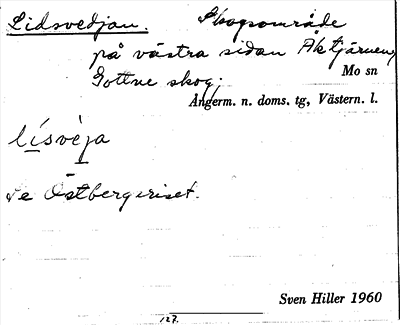 Lidsvedjan. Skogsområde
på västra sidan Åktjärnen,
Gottne skog;
Mo sn
Ångerm. n. doms. tg, Västern. l.
lísvèja
Se Östbergeriset.
Sven Hiller 1960
127.